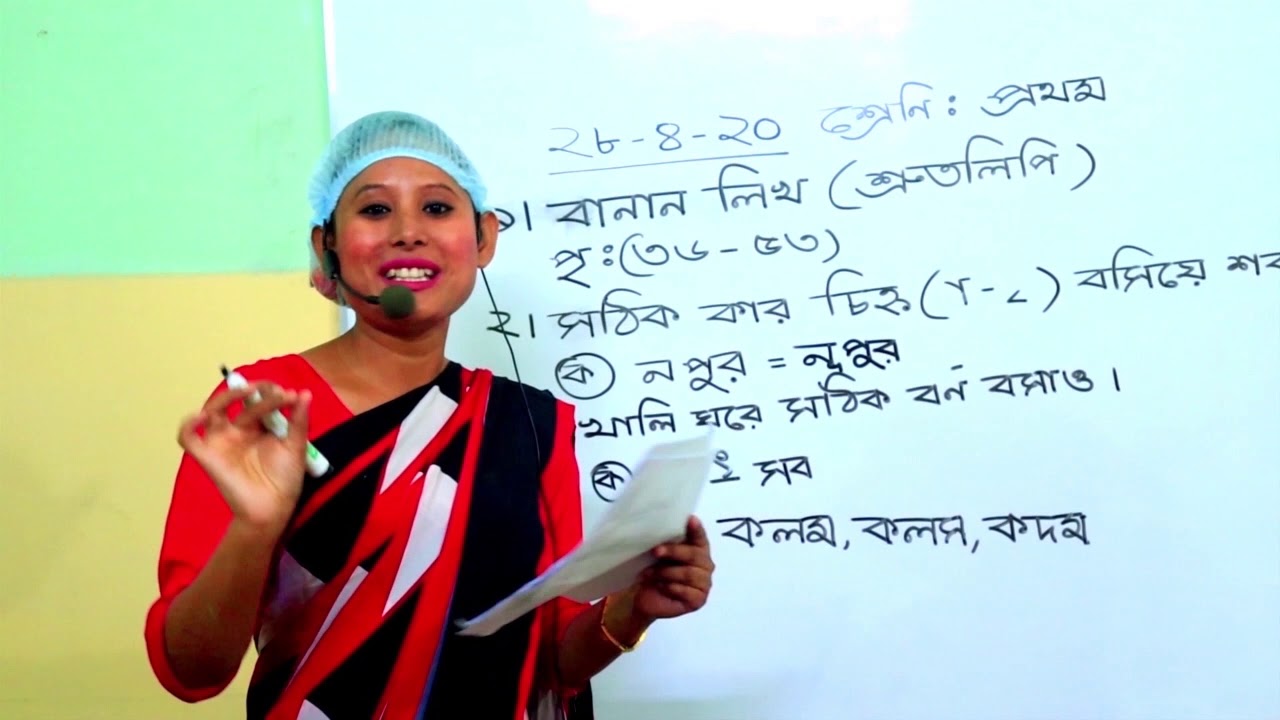 ২৮-৪-২০ শ্রেনি : প্রথম
১। বানান লিখ (শ্রুতলিপি)
পৃঃ(৩৬-৫৩)
২। সঠিক কার চিহ্ন (া - ৄ) বসিয়ে
ক নপুর = নূপুর
খালি ঘরে সঠিক বর্ন বসাও।
ক সব
কলম, কলস, কদম